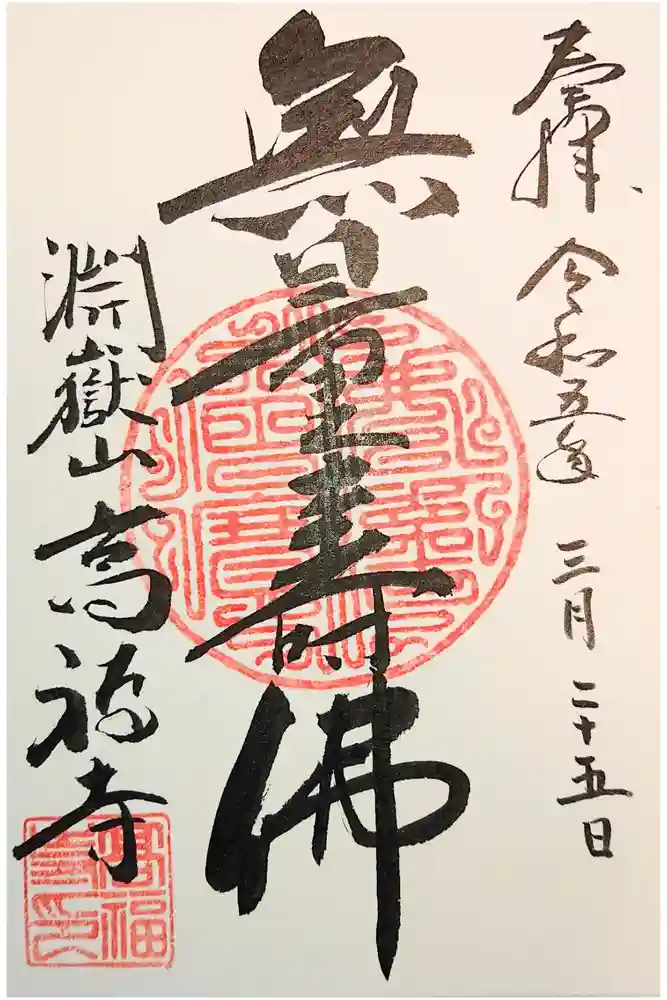 奉拝 令和五年 三月 二十五日
無量寿佛
淵嶽山 高福寺
高福寺印